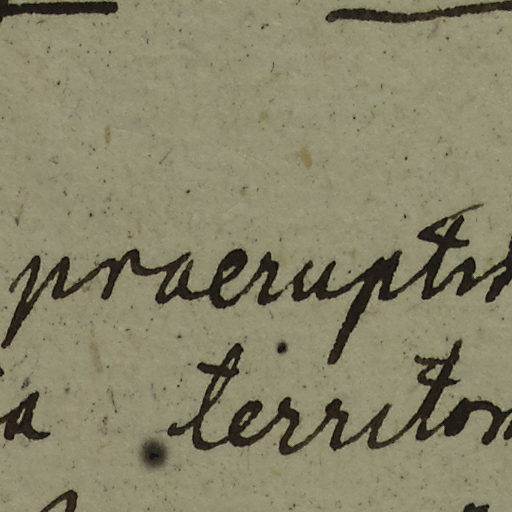 praerupti
a territor